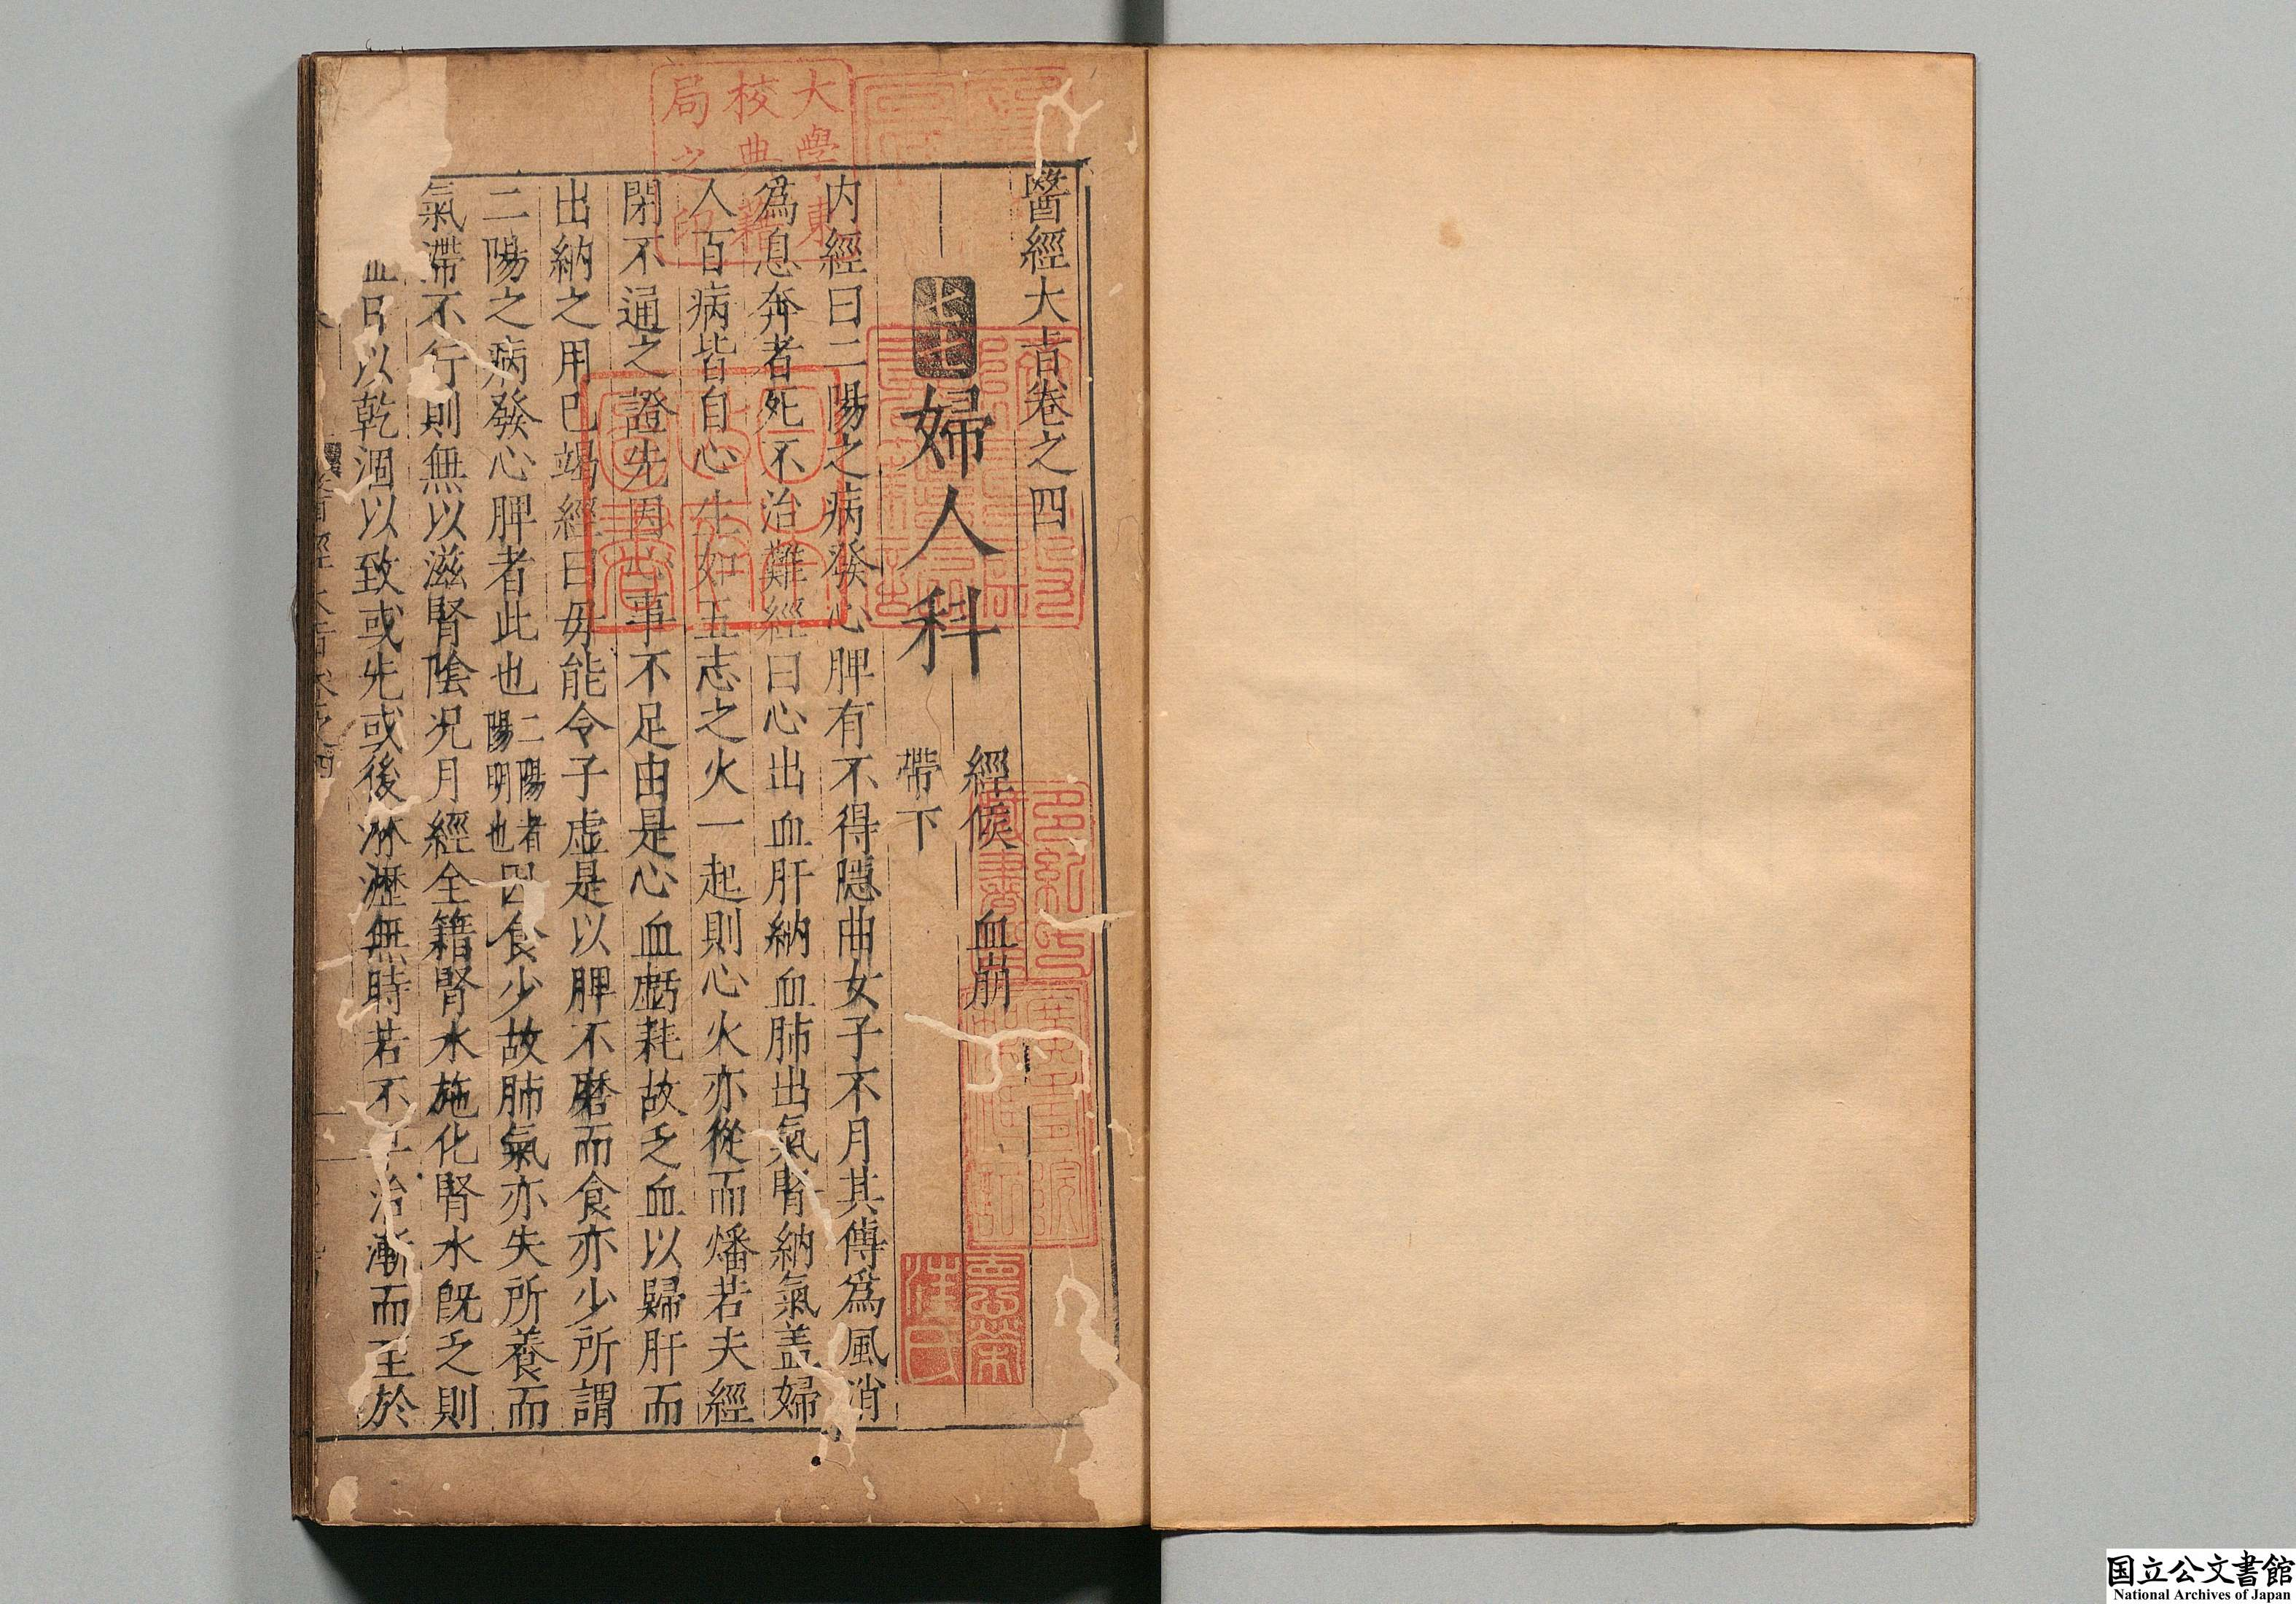 醫經大旨卷之四
七七婦人科 經候 血崩
帶下
内經曰二陽之病發心脾有不得隱曲女子不月其傳爲風消
爲息奔者死不治難經曰心出血肝納血肺出氣腎納氣盖婦
人百病皆自心生如五志之火一起則心火亦從而燔若夫經
閉不通之證先因心事不足由是心血虧耗故乏血以歸肝而
出納之用已竭經曰毋能令子虛是以脾不磨而食亦少所謂
二陽之病發心脾者此也二陽者陽明也因食少故肺氣亦失所養而
氣滯不行則無以滋腎陰况月經全籍腎水施化腎水旣乏則
血日以乾涸以致或先或後淋瀝無時若不治漸而至於
大學東
校典籍
局之印
日本
政府
圖書
多紀氏
藏書印
醫經大旨卷之四
国立公文書館
National Archives of Japan